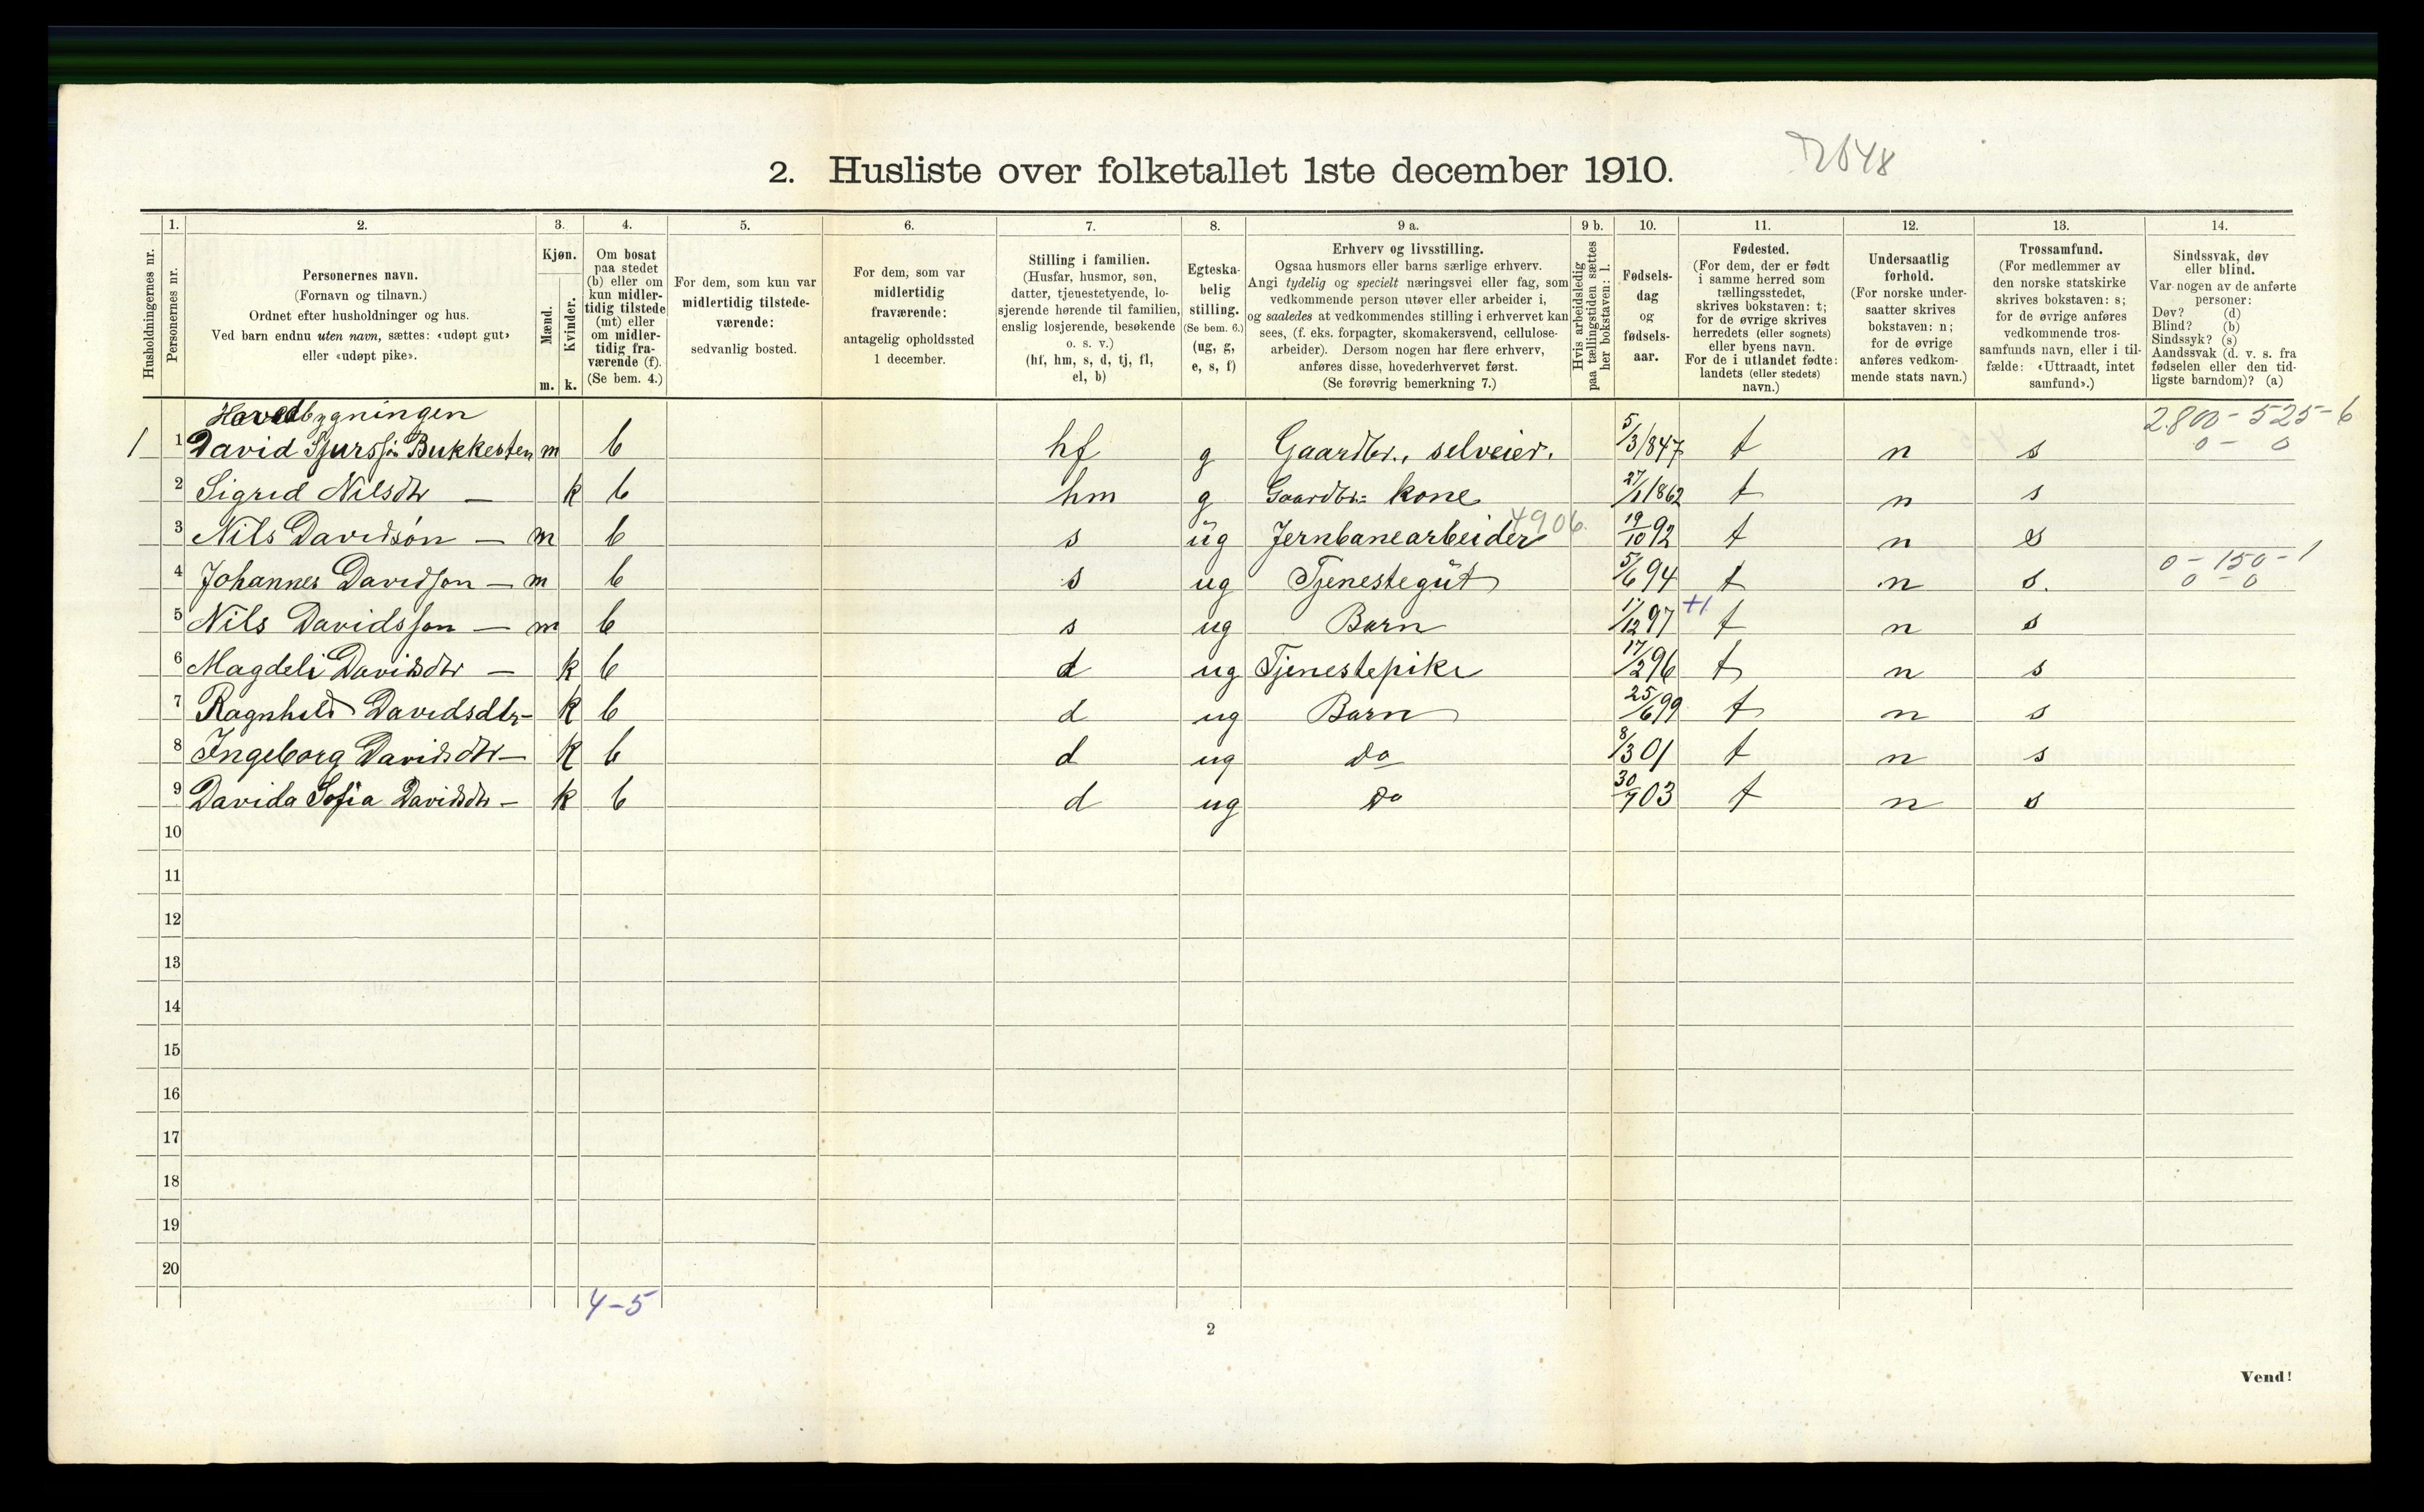 2. Husliste over folketallet 1ste december 1910.
1. 2. 3. 4. 5. 6. 7. 8. 9 a. 9 b. 10. 11. 12. 13. 14.
Husholdningernes nr.
Personernes nr.
Personernes navn.
(Fornavn og tilnavn.)
Ordnet efter husholdninger og hus.
Ved barn endnu uten navn, sættes: «udøpt gut»
eller «udøpt pike».
Kjøn.
Mænd.
Kvinder.
m. k.
Om bosat
paa stedet
(b) eller om
kun midler-
tidig tilstede
(mt) eller
om midler-
tidig fra-
værende (f).
(Se bem. 4.)
For dem, som kun var
midlertidig tilstede-
værende:
sedvanlig bosted.
For dem, som var
midlertidig
fraværende:
antagelig opholdssted
1 december.
Stilling i familien.
(Husfar, husmor, søn,
datter, tjenestetyende, lo-
sjerende hørende til familien,
enslig losjerende, besøkende
o. s. v.)
(hf, hm, s, d, tj, fl,
el, b)
Egteska-
belig
stilling.
(Se bem. 6.)
(ug, g,
e, s, f)
Erhverv og livsstilling.
Ogsaa husmors eller barns særlige erhverv.
Angi tydelig og specielt næringsvei eller fag, som
vedkommende person utøver eller arbeider i,
og saaledes at vedkommendes stilling i erhvervet kan
sees, (f. eks. forpagter, skomakersvend, cellulose-
arbeider). Dersom nogen har flere erhverv,
anføres disse, hovederhvervet først.
(Se forøvrig bemerkning 7.)
Hvis arbeidsledig
paa tællingstiden sættes
her bokstaven: l.
Fødsels-
dag
og
fødsels-
aar.
Fødested.
(For dem, der er født
i samme herred som
tællingsstedet,
skrives bokstaven: t;
for de øvrige skrives
herredets (eller sognets)
eller byens navn.
For de i utlandet fødte:
landets (eller stedets)
navn.)
Undersaatlig
forhold.
(For norske under-
saatter skrives
bokstaven: n;
for de øvrige
anføres vedkom-
mende stats navn.)
Trossamfund.
(For medlemmer av
den norske statskirke
skrives bokstaven: s;
for de øvrige anføres
vedkommende tros-
samfunds navn, eller i til-
fælde: «Uttraadt, intet
samfund».)
Sindssvak, døv
eller blind.
Var nogen av de anførte
personer:
Døv? (d)
Blind? (b)
Sindssyk? (s)
Aandssvak (d. v. s. fra
fødselen eller den tid-
ligste barndom)? (a)
Hovedbygningen 2.800 - 525 - 6
1 1 David Sjursson Bukkesten m b hf g Gaardbr., selveier. 5/3/847 t n s 0 - 0
2 Sigrid Nilsdtr — k b hm g Gaardbr: kone 27/1/862 t n s
4906.
3 Nils Davidson — m b s ug Jernbanearbeider 19/10 92 t n s
0 - 150 - 1
4 Johannes Davidson — m b s ug Tjenestegut 5/6 94 t n s. 0 - 0
5 Nils Davidsson — m b s ug Barn 17/12 97 +1 t n s
6 Magdeli Davidsdtr — k b d ug Tjenestepike 17/2 96 t n s
7 Ragnhild Davidsdtr — k b d ug Barn 25/6 99 t n s
8 Ingeborg Davidsdtr — k b d ug do 8/3 01 t n s
9 Davida Sofia Davidsdtr — k b d ug Do 30/7 03 t n s
10
11
12
13
14
15
16
17
18
19
20
4-5
2
Vend!